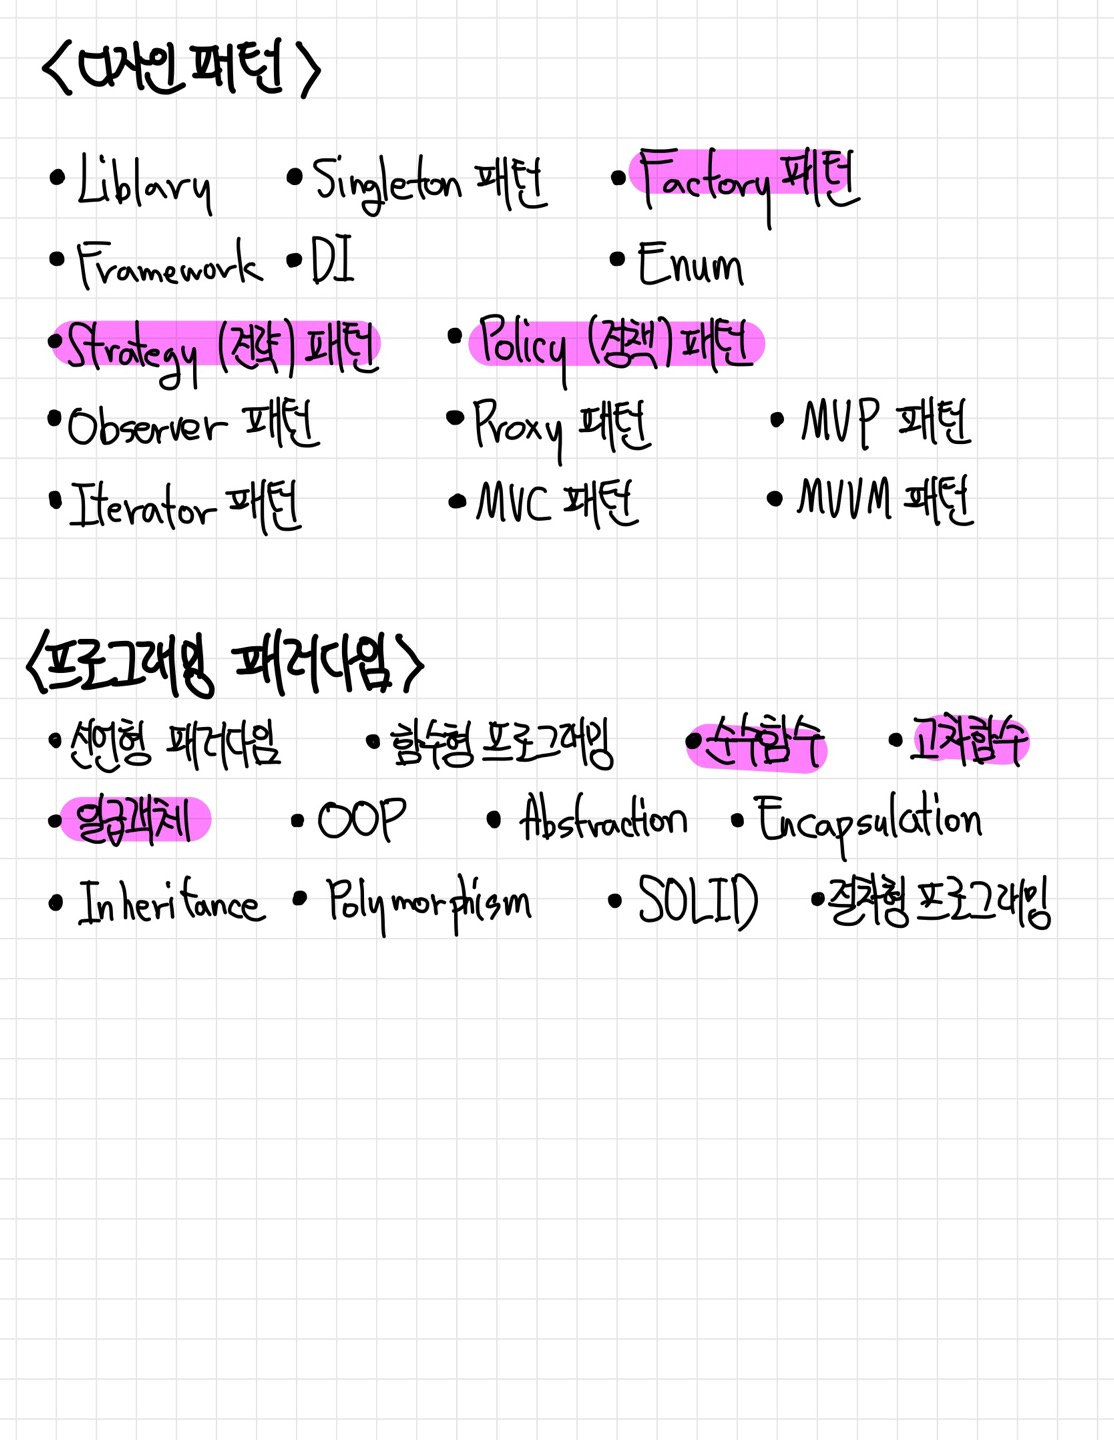 <디자인 패턴>
• Liblary • Singleton 패턴 • Factory 패턴
• Framework • DI • Enum
• Strategy (전략) 패턴 • Policy (정책) 패턴
• Observer 패턴 • Proxy 패턴 • MVP 패턴
• Iterator 패턴 • MVC 패턴 • MVVM 패턴
<프로그래밍 패러다임>
• 선언형 패러다임 • 함수형 프로그래밍 • 순수함수 • 고차함수
• 일급객체 • OOP • Abstraction • Encapsulation
• Inheritance • Polymorphism • SOLID • 절차형 프로그래밍